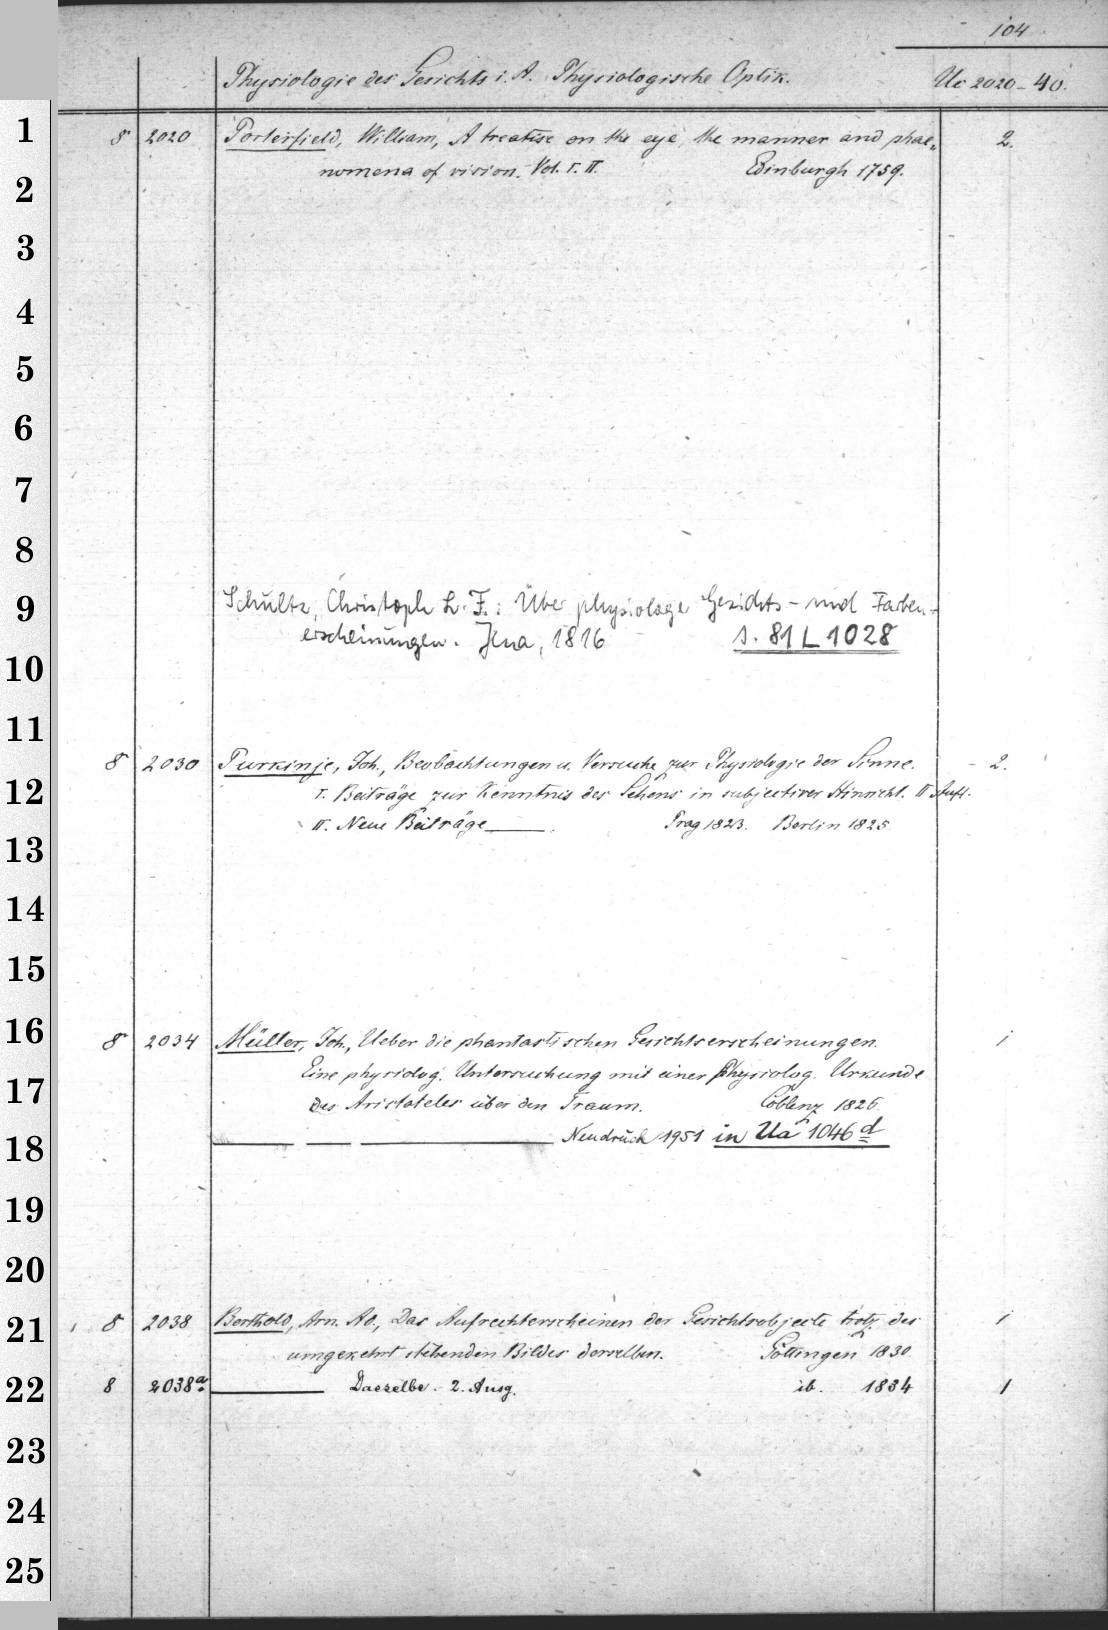 104
Physiologie des Gesichts i. A. Physiologische Optik. Uc 2020-40.
1
8 2020 Porterfield, William, A treatise on the eye, the manner and phae= 2.
nomena of vision. Vol. I. II. Edinburgh 1759.
2
3
4
5
6
7
8
Schultz, Christoph L. F.: Über physiologe Gesichts- und Farben-
9
erscheinungen. Jena, 1816 s. 81 L 1028
10
11
8 2030 Purkinje, Joh., Beobachtungen u. Versuche zur Physiologie der Sinne. 2.
12
I. Beiträge zur Kenntnis des Sehens in subjectiver Hinsicht. II Aufl.
II. Neue Beiträge ——. Prag 1823. Berlin 1825
13
14
15
16
8 2034 Müller, Joh., Ueber die phantastischen Gesichtserscheinungen. 1
Eine physiolog. Untersuchung mit einer physiolog. Urkunde
17
des Aristoteles über den Traum. Coblenz 1826.
—— —— —— Neudruck 1951 in Ua 1046 d
18
19
20
8 2038 Berthold, Arn. Ad., Das Aufrechterscheinen der Gesichtsobjecte trotz des 1
21
umgekehrt stehenden Bildes derselben. Göttingen 1830
8 2038a —— Dasselbe. 2. Ausg. ib. 1834 1
22
23
24
25